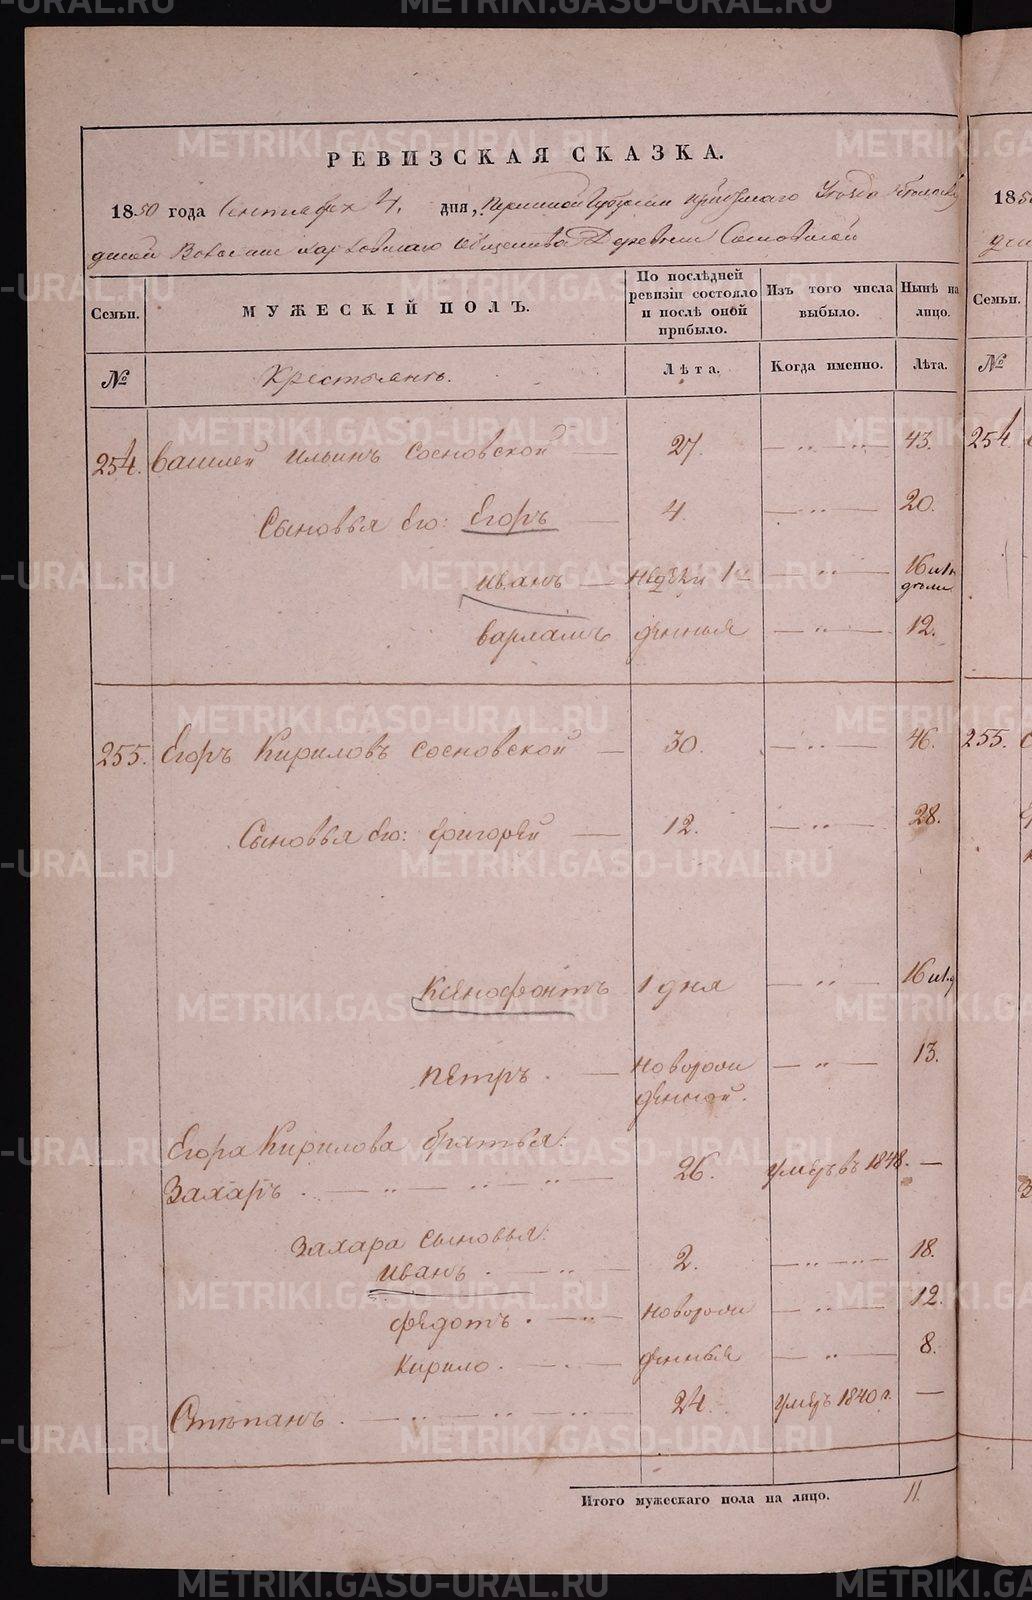 РЕВИЗСКАЯ СКАЗКА.
1850 года Сентября 4. дня, Пермской Губернии Уезда
Волости Общества Деревни Сосновской
Семьи. МУЖЕСКІЙ ПОЛЪ. По послѣдней ревизіи состояло и послѣ оной прибыло. Изъ того числа выбыло. Нынѣ на лицо. Семьи.
№ Крестьянъ. Лѣта. Когда именно. Лѣта. №
254. Василей Ильинъ Сосновской 27. 43. 254
Сыновья его: Егоръ 4. 20.
Иванъ 16
Варламъ денныя 12.
255. Егоръ Кириловъ Сосновской 30. 46. 255.
Сыновья его: Григорей 12. 28.
Ксенофонтъ 1 дня 16
Петръ новорож
денной. 13.
Егора Кирилова братья:
Захаръ 26. умеръ въ 1848. —
Захара сыновья:
Иванъ 2. 18.
Федотъ новорож 12.
Кирило денныя 8.
Степанъ 24. умеръ 1840 г. —
Итого мужескаго пола на лицо. 11.
METRIKI.GASO-URAL.RU